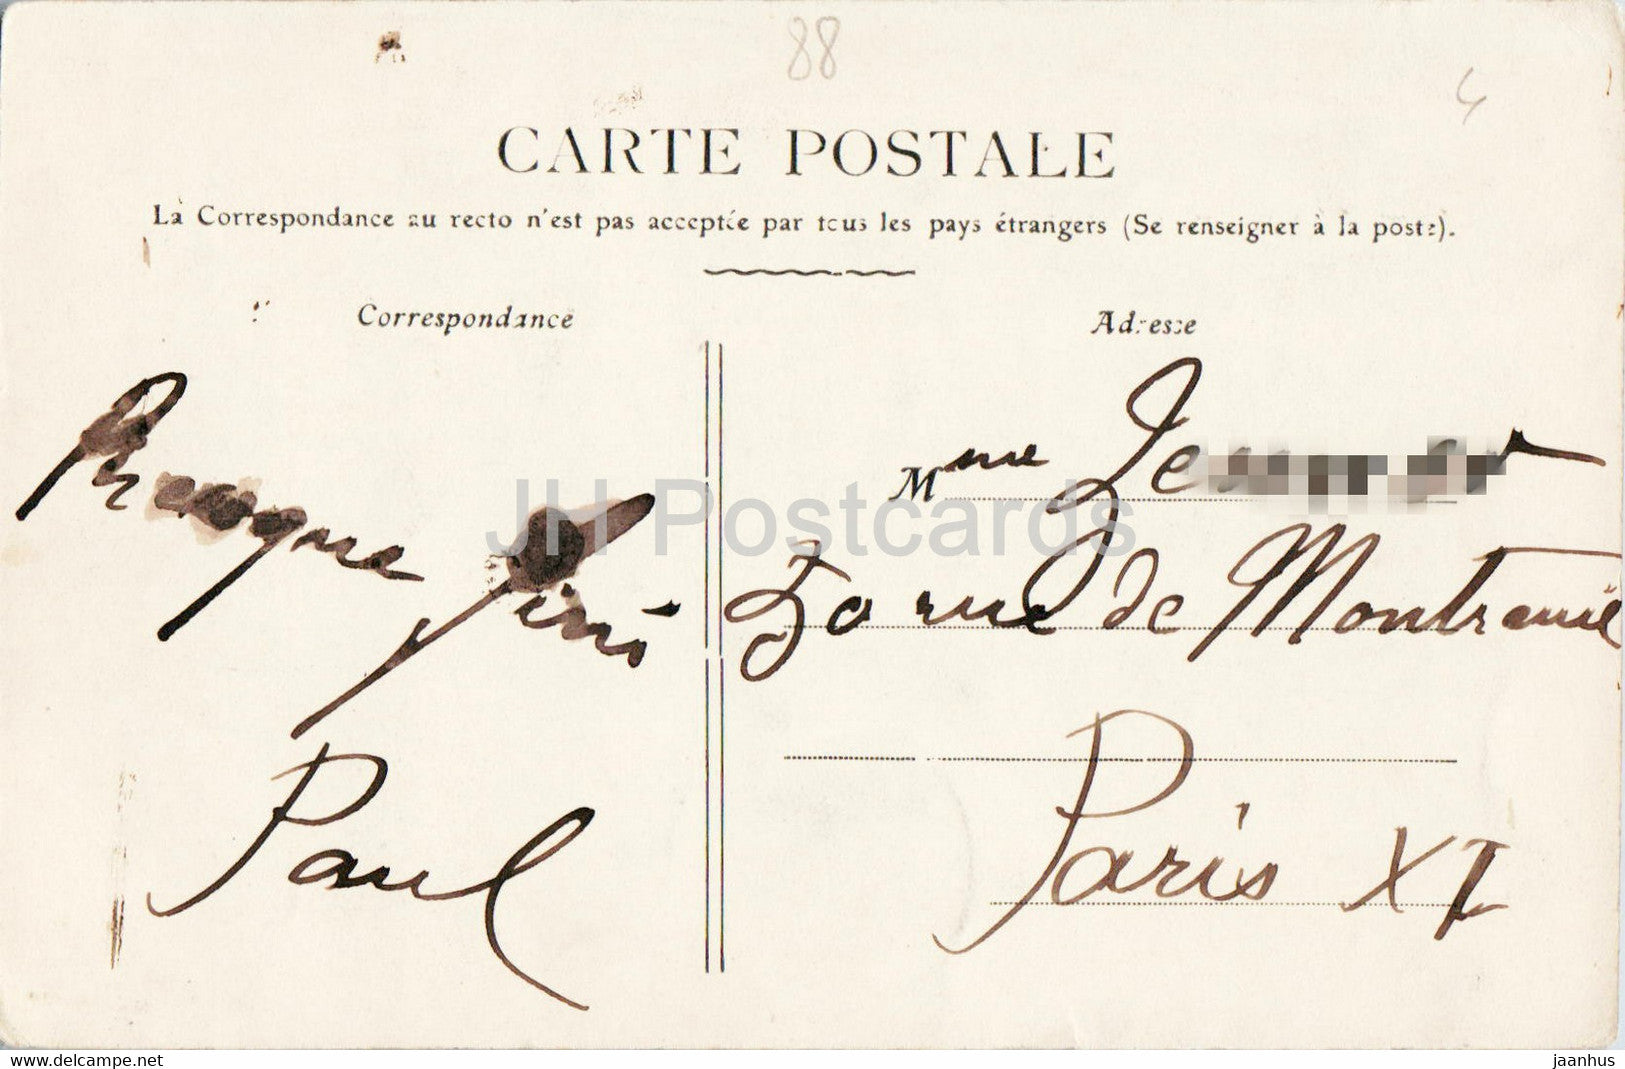 88
CARTE POSTALE
La Correspondance au recto n'est pas acceptée par tous les pays étrangers (Se renseigner à la poste).
Correspondance
Presque fini
Paul
Adresse
Mme
rue de Montreuil
Paris XI
JH Postcards
www.delcampe.net
jaanhus